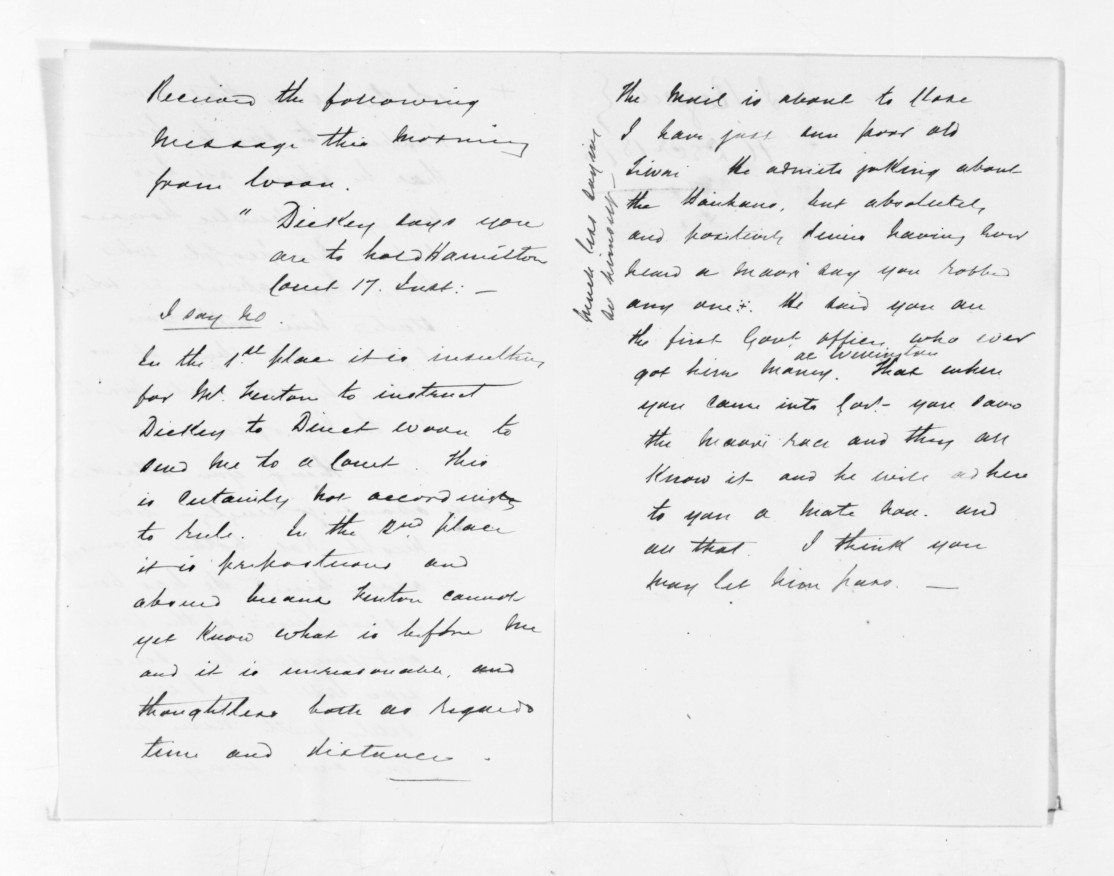 Received the following
Message this Morning
from Woon.
" Dickey says you
are to hold Hamilton
Court 17. Inst: —
I say No.
In the 1st place it is insulting
for Mr. Fenton to instruct
Dickey to Direct Woon to
send Me to a Court. This
is certainly not according
to rule. In the 2nd place
it is preposterous and
absurd because Fenton cannot
yet know what is before Me
and it is unreasonable, and
thoughtless both as regards
time and distance.
The Mail is about to close
I have just seen poor old
He admits joking about
the Hauhaus, but absolutely
and positively denies having ever
heard a Maori say you robbed
any one +. He said you are
the first Govt officer, who ever
got him Money. at Wellington That when
you came into Govt - you saved
the Maori race and they all
know it and he will adhere
to you a mate noa. and
all that. I think you
may let him pass. —
much less saying
so himself —